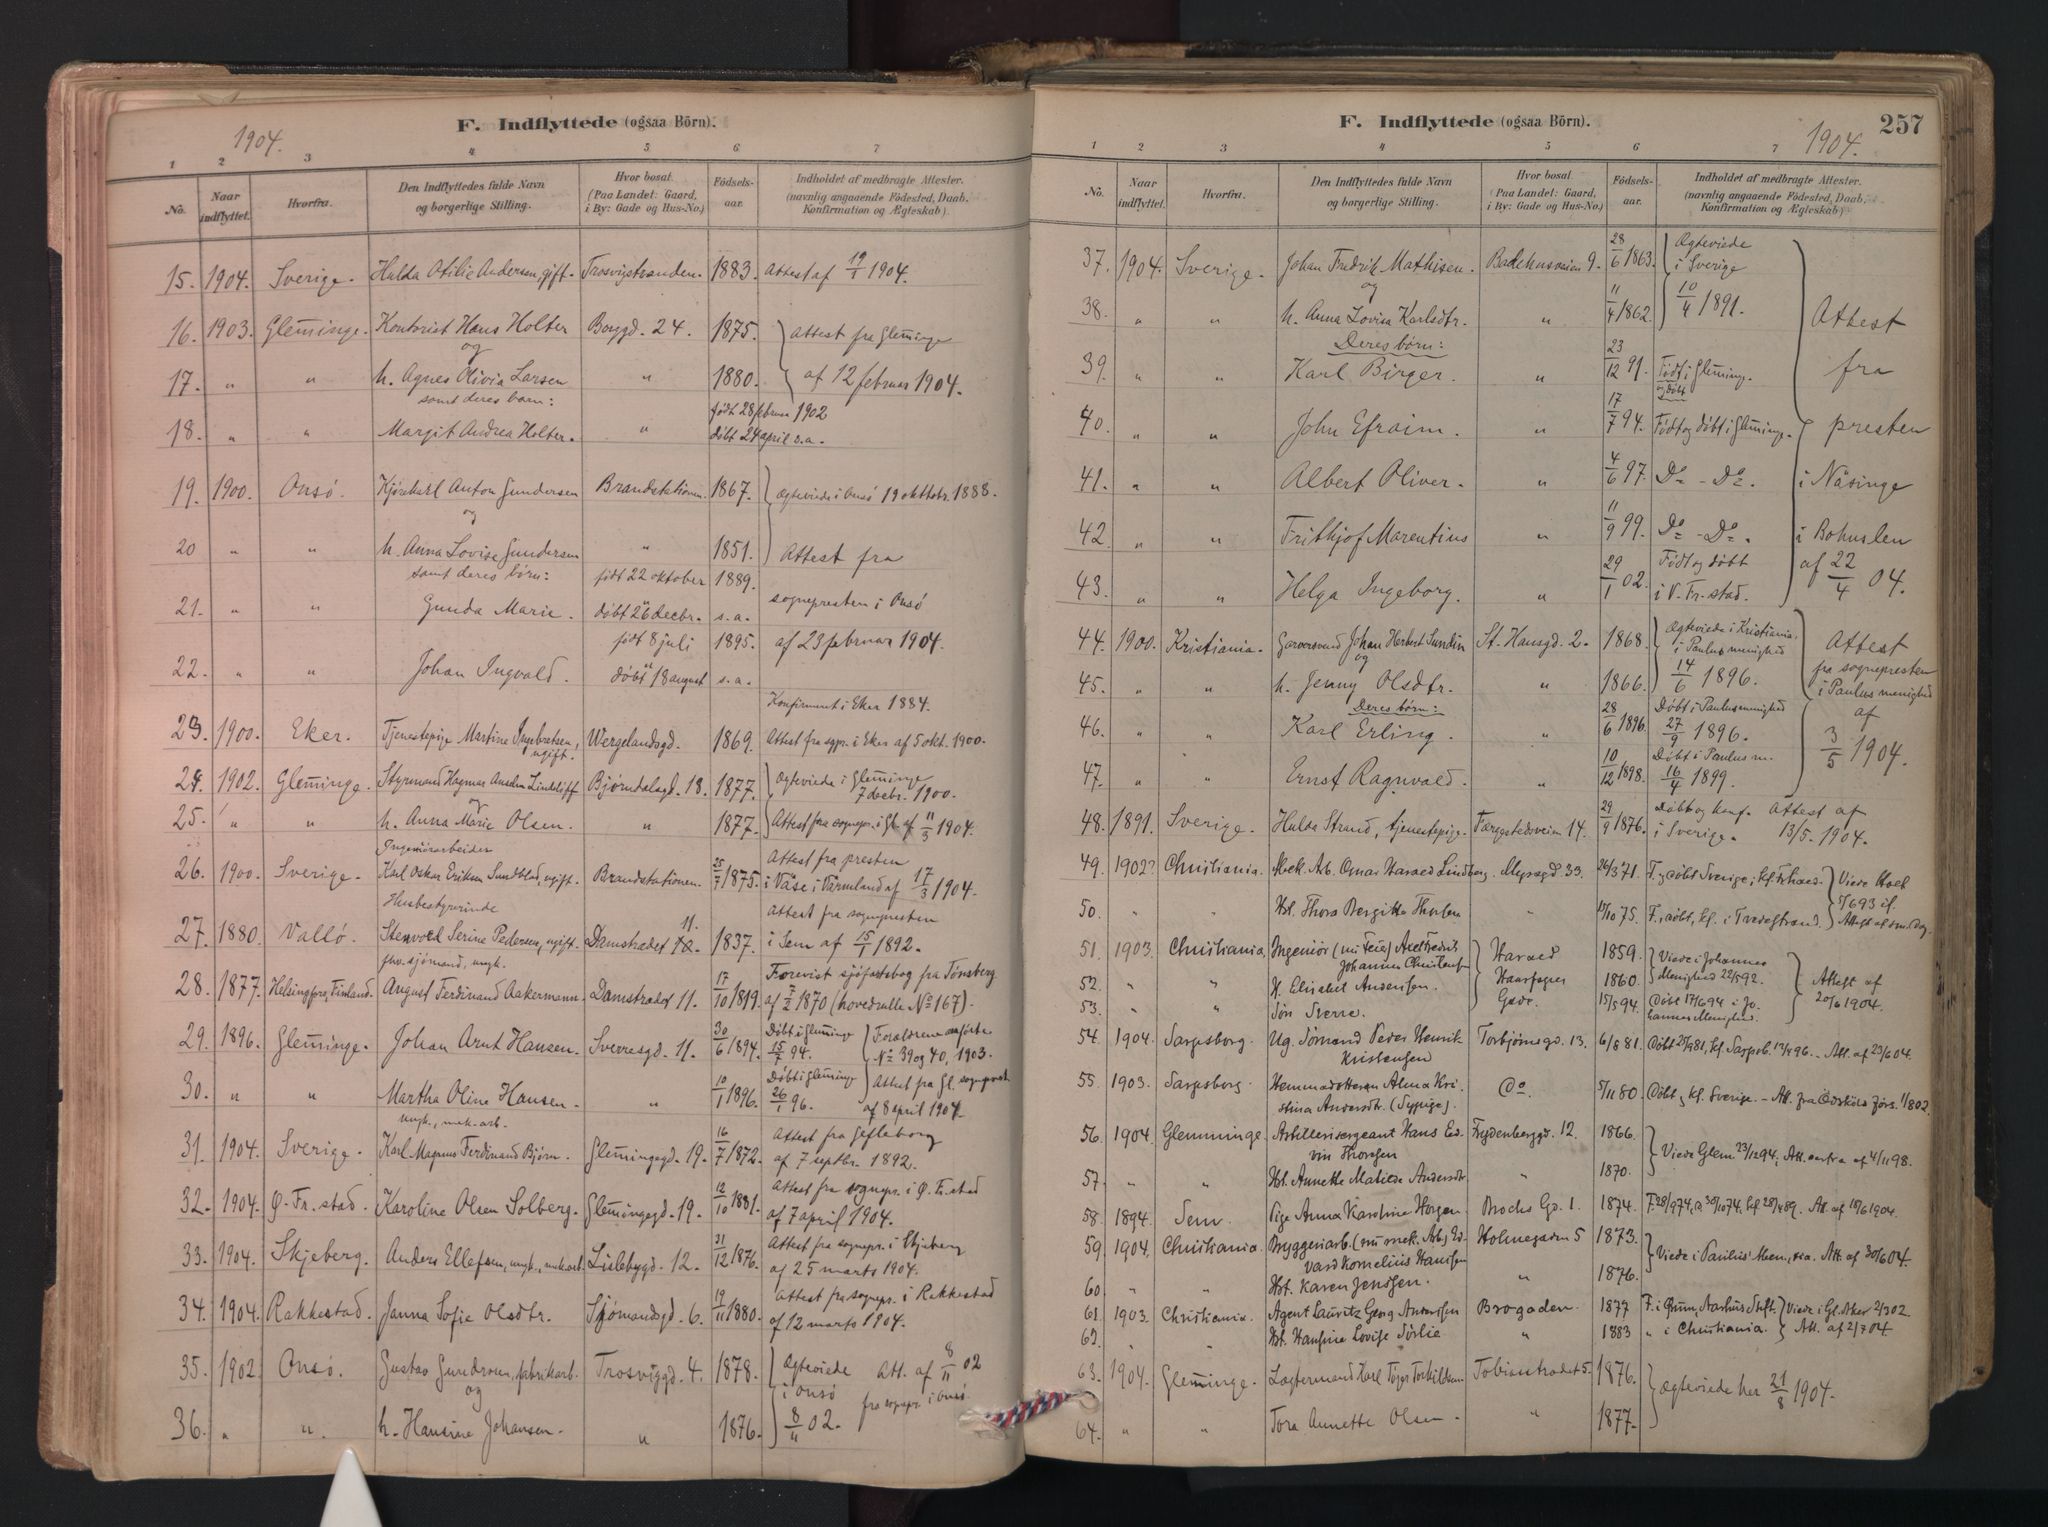 1904.
F. Indflyttede (ogsaa Börn).
1 2 3 4 5 6 7
No. Naar indflyttet. Hvorfra. Den Indflyttedes fulde Navn og borgerlige Stilling. Hvor bosat (Paa Landet: Gaard, i By: Gade og Hus-No.) Födsels-aar. Indholdet af medbragte Attester. (navnlig angaaende Födested, Daab, Konfirmation og Ægteskab)
15. 1904. Sverige. Hulda Otilie Andersen, gift. Trosvigstranden. 1883. Attest af 19/1 1904.
16. 1903. Glem̅inge. Kontorist Hans Holter Borggd. 24. 1875. Attest fra Glem̅inge
og
17. " " h. Agnes Olivia Larsen " 1880. af 12 februar 1904.
samt deres barn: født 28 februar 1902
18. " " Margit Andrea Holter. " døbt 24 april s.a.
19. 1900. Onsö. Kjørekarl Anton Gundersen Brandstationen. 1867. Ægteviede i Onsö 19 oktobr. 1888.
og
20 " " h. Anna Lovise Gundersen " 1851. Attest fra
samt deres börn: født 22 oktober 1889.
21. " " Gunda Marie døbt 26 decbr. s.a. sognepresten i Onsö
født 8 juli 1895. af 23 februar 1904.
22. " " Johan Ingvald. døbt 18 august s.a.
Konfirmeret i Eker 1884.
23. 1900. Eker. Tjenestepige Martine Ingebretsen, ugift. Wergelandsgd. 1869. Attest fra sgpr. i Eker af 5 okt. 1900.
24. 1902. Glem̅inge. Styrmand Bjørndalsgd. 18. 1877. Ægteviede i Glem̅inge 7 decbr. 1900.
25. " " h. Anna Marie Olsen. " 1877. Attest fra sognepr. i Gl. af 11/3 1904.
Ingeniörarbeider
26. 1900. Sverige. Karl Oskar Eriksen Sundblad, ugift. Brandstationen. 25/7 1875. Attest fra presten i Väse i Värmland af 17/3 1904.
Husbestyrerinde
27. 1880. Vallö. Serine Pedersen, ugift. Damstrædet 11. 1837. Attest fra sognepresten i Sem af 15/1 1892.
fhv. sjömand, ungk.
28. 1877. Helsingfors, Finland. August Ferdinand Aakermann. Damstrædet 11. 17/10 1819. Forevist sjöfartsbog fra Tönsberg af 7/2 1870 (hovedrulle No 167).
29. 1896. Glem̅inge. Johan Arnt Hansen. Sverresgd. 11. 30/6 1894. Döbt i Glem̅inge 15/7 94. Forældrene anförte No 39 og 40, 1903.
30. " " Martha Oline Hansen. " 10/1 1896. Döbt i Glem̅inge 26/1 96. Attest fra Gl. sogneprest af 8 april 1904.
ungk., mek. arb.
31. 1904. Sverige. Karl Magnus Ferdinand Björn. Glem̅ingegd. 19. 16/7 1872. Attest fra Gefleborg af 7 septbr. 1892.
32. 1904. Ø. Fr.stad. Karoline Olsen Solberg. Glem̅ingegd. 19. 12/10 1881. Attest fra sognepr. i Ø. Fr.stad af 7 april 1904.
33. 1904. Skjeberg. Anders Ellefsen, ungk., mek. arb. Lislebygd. 12. 31/12 1876. Attest fra sognepr. i Skjeberg af 25 marts 1904.
34. 1904. Rakkestad. Janna Sofie Olsdtr. Sjömandsgd. 6. 19/11 1880. Attest fra sognepr. i Rakkestad af 12 marts 1904.
35. 1902. Onsö. Gustav Gundersen, fabrikarb. Trosviggd. 4. 1878. Ægteviede i Onsö 8/11 02. Att. af 8/11 02 fra sognepr. i Onsö
og
36. " " h. Hansine Johansen. " 1876.
F. Indflyttede (ogsaa Börn).
257
1904.
1 2 3 4 5 6 7
No. Naar indflyttet. Hvorfra. Den Indflyttedes fulde Navn og borgerlige Stilling. Hvor bosat (Paa Landet: Gaard, i By: Gade og Hus-No.) Födsels-aar. Indholdet af medbragte Attester. (navnlig angaaende Födested, Daab, Konfirmation og Ægteskab)
37. 1904. Sverige. Johan Fredrik Mathisen. Badehusveien 9. 28/6 1863. Ægteviede i Sverige 10/4 1891.
og
38. " " h. Anna Lovisa Karlsdtr. " 11/4 1862.
Deres börn:
39. " " Karl Birger. " 23/12 91. Född i Glem̅inge. og döbt
40. " " John Efraim. " 17/7 94. Född og döbt i Glem̅inge.
41. " " Albert Oliver. " 4/6 97. Do - Do.
42. " " Frithjof Marentius " 11/9 99. Do - Do.
43. " " Helga Ingeborg. " 29/1 02. Födt og döbt i V. Fr.stad.
Attest fra presten i Näsinge i Bohuslen af 22/4 04.
44. 1900. Kristiania. Garversvend Johan Herbert Sundin St. Hansgd. 2. 1868. Ægteviede i Kristiania, i Paulus menighed 14/6 1896.
og
45. " " h. Jenny Olsdtr. " 1866.
Deres börn:
46. " " Karl Erling. " 28/6 1896. Döbt i Paulus menighed 27/9 1896.
47. " " Ernst Ragnvald. " 10/12 1898. Döbt i Paulus m. 16/4 1899.
Attest fra sognepresten i Paulus menighed af 3/5 1904.
48. 1891. Sverige. Hulda Strand, tjenestepige. Færgestedsveien 14. 29/9 1876. Döbt og konf. i Sverige. Attest af 13/5. 1904.
49. 1902? Christiania. Mek. Arb. Omar Harald Lindberg. Myragd. 33. 26/3 71. F. og döbt Sverige; kf.
50. " " Hst. Thora Bergitte " 15/10 75. F., döbt, kf. i Tvedestrand.
51. 1903. Christiania, Ingeniör Axel Fredrik Johannes Christensen Harald 1859. Viede i Johannes Menighed 22/5 92.
52. " " H. Elisabet Andersen. Haarfagres 1860.
53. " " Sön Sverre. Gade. 15/5 94. Döbt 17/6 94 i Johannes Menighed.
Attest af 20/6 1904.
54. 1904. Sarpsborg. Ug. Sömand Peder Henrik Kristensen Torbjörnsgd. 13. 6/8 81. Döbt 25/9 81, kf. Sarpsb. 13/9 96. - Att. af 23/6 04.
55. 1903. Sarpsborg. Alma Kristina Andersdtr. (Sypige). Do. 5/11 80 Döbt, kf. Sverige. - Att. fra
56. 1904. Glemminge. Artillerisergeant Hans Edvin Thoresen Frydenberggd. 12. 1866. Viede Glem 23/12 94; Att. derfra af 4/11 98.
57. " " Hst. Annette Matilde Andersdtr " 1870.
58. 1894. Sem. Pige Anna Karoline Horgen. Brochs Gd. 1. 1874. F. 28/9 74, d. 30/10 74. kf. 28/4 89. Att. af 18/6 1904.
59. 1904. Christiania. Bryggeriarb. (nu mek. Arb) Edvard Kornelius Hansen Holmegaden 5 1873. Viede i Paulus Men., Att. af 30/6 04.
60. " " Hst. Karen Jensen. " 1876.
61. 1903. Christiania. Agent Lauritz Georg Andersen Brogaden. 1877 F. i Aarhus Stift. Viede i Gl. Aker 2/3 02
62. " " Hst. Hansine Lovise Sörlie " 1883 " i Christiania. Att. af 2/7 04
63. 1904. Glem̅inge. Lagtermand Karl Torkildsen Tobiestrædet 5. 1876. Ægteviede her 21/8 1904.
64. " " Tora Annette Olsen. " 1877.